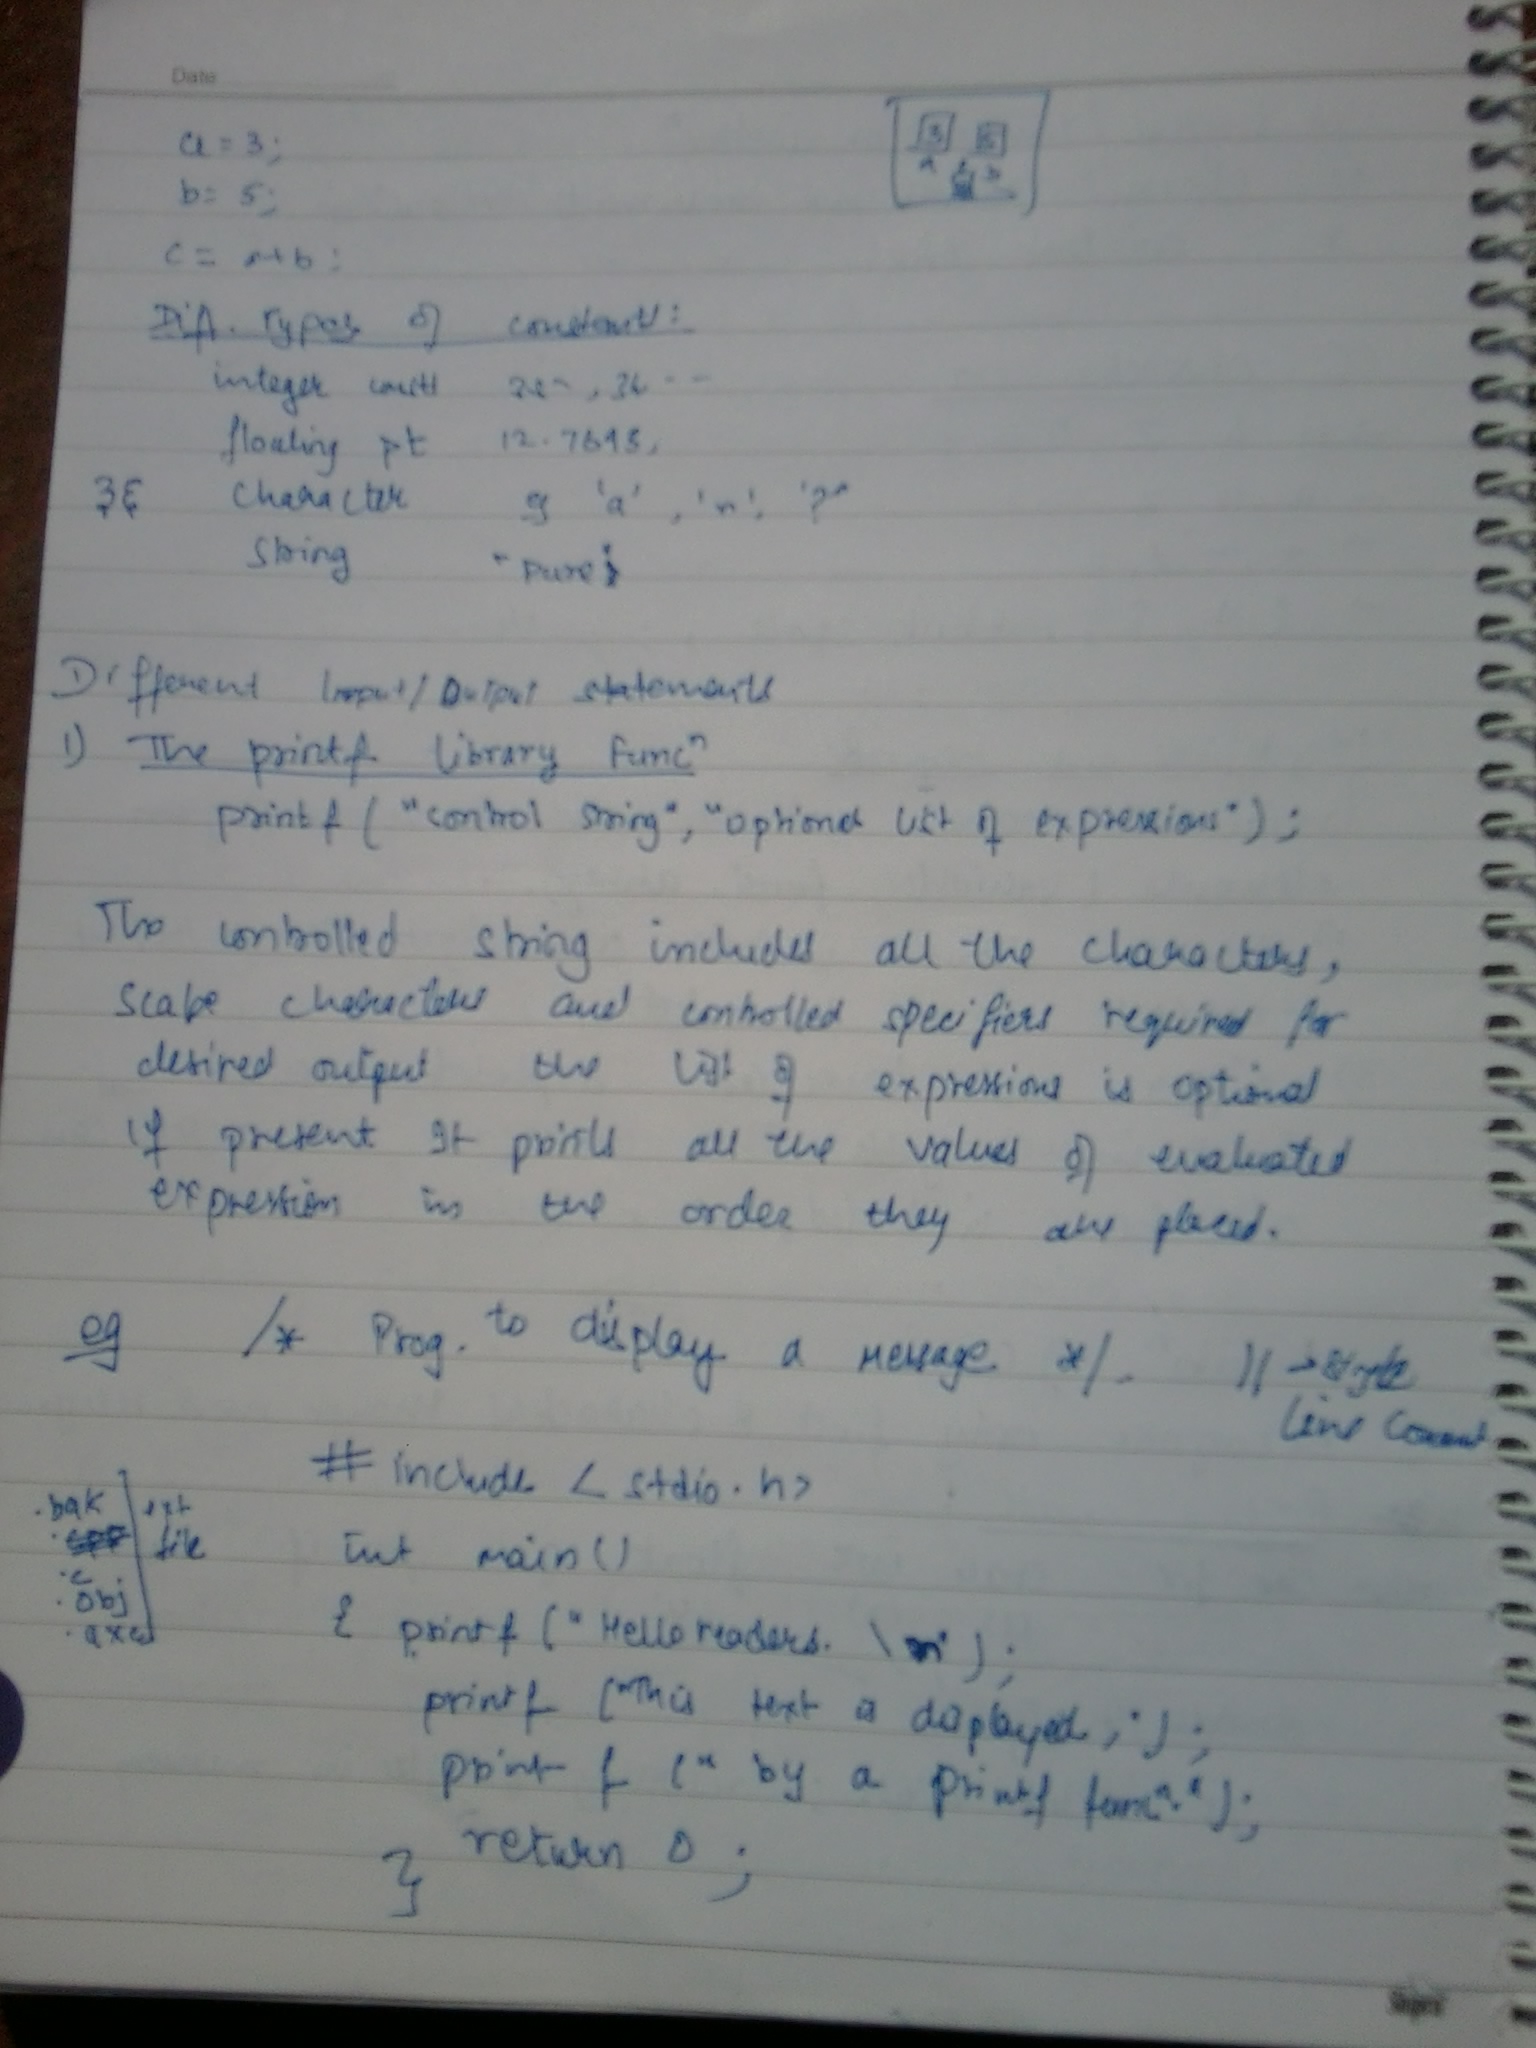 Date
a = 3;
b = 5;
c = a+b;
3 5
a b
c
Diff. Types of constant:
integer 36 --
floating pt 12.7698,
Character eg 'a', 'n', '?'
String "pure"
Different Input/Output statements
1) The printf library funcⁿ
printf ("control string", "optional list of expressions");
The controlled string includes all the characters,
scape characters and controlled specifiers required for
desired output the list of expressions is optional
if present it prints all the values of evaluated
expression in the order they are placed.
eg /* Prog. to display a message */. // → Single
Line Comment
# include < stdio.h>
.bak ext
file
int main()
.c
.obj
{ printf ("Hello readers. \n");
.axe
printf ("This text is displayed,");
printf (" by a printf funcⁿ.");
return 0 ;
}